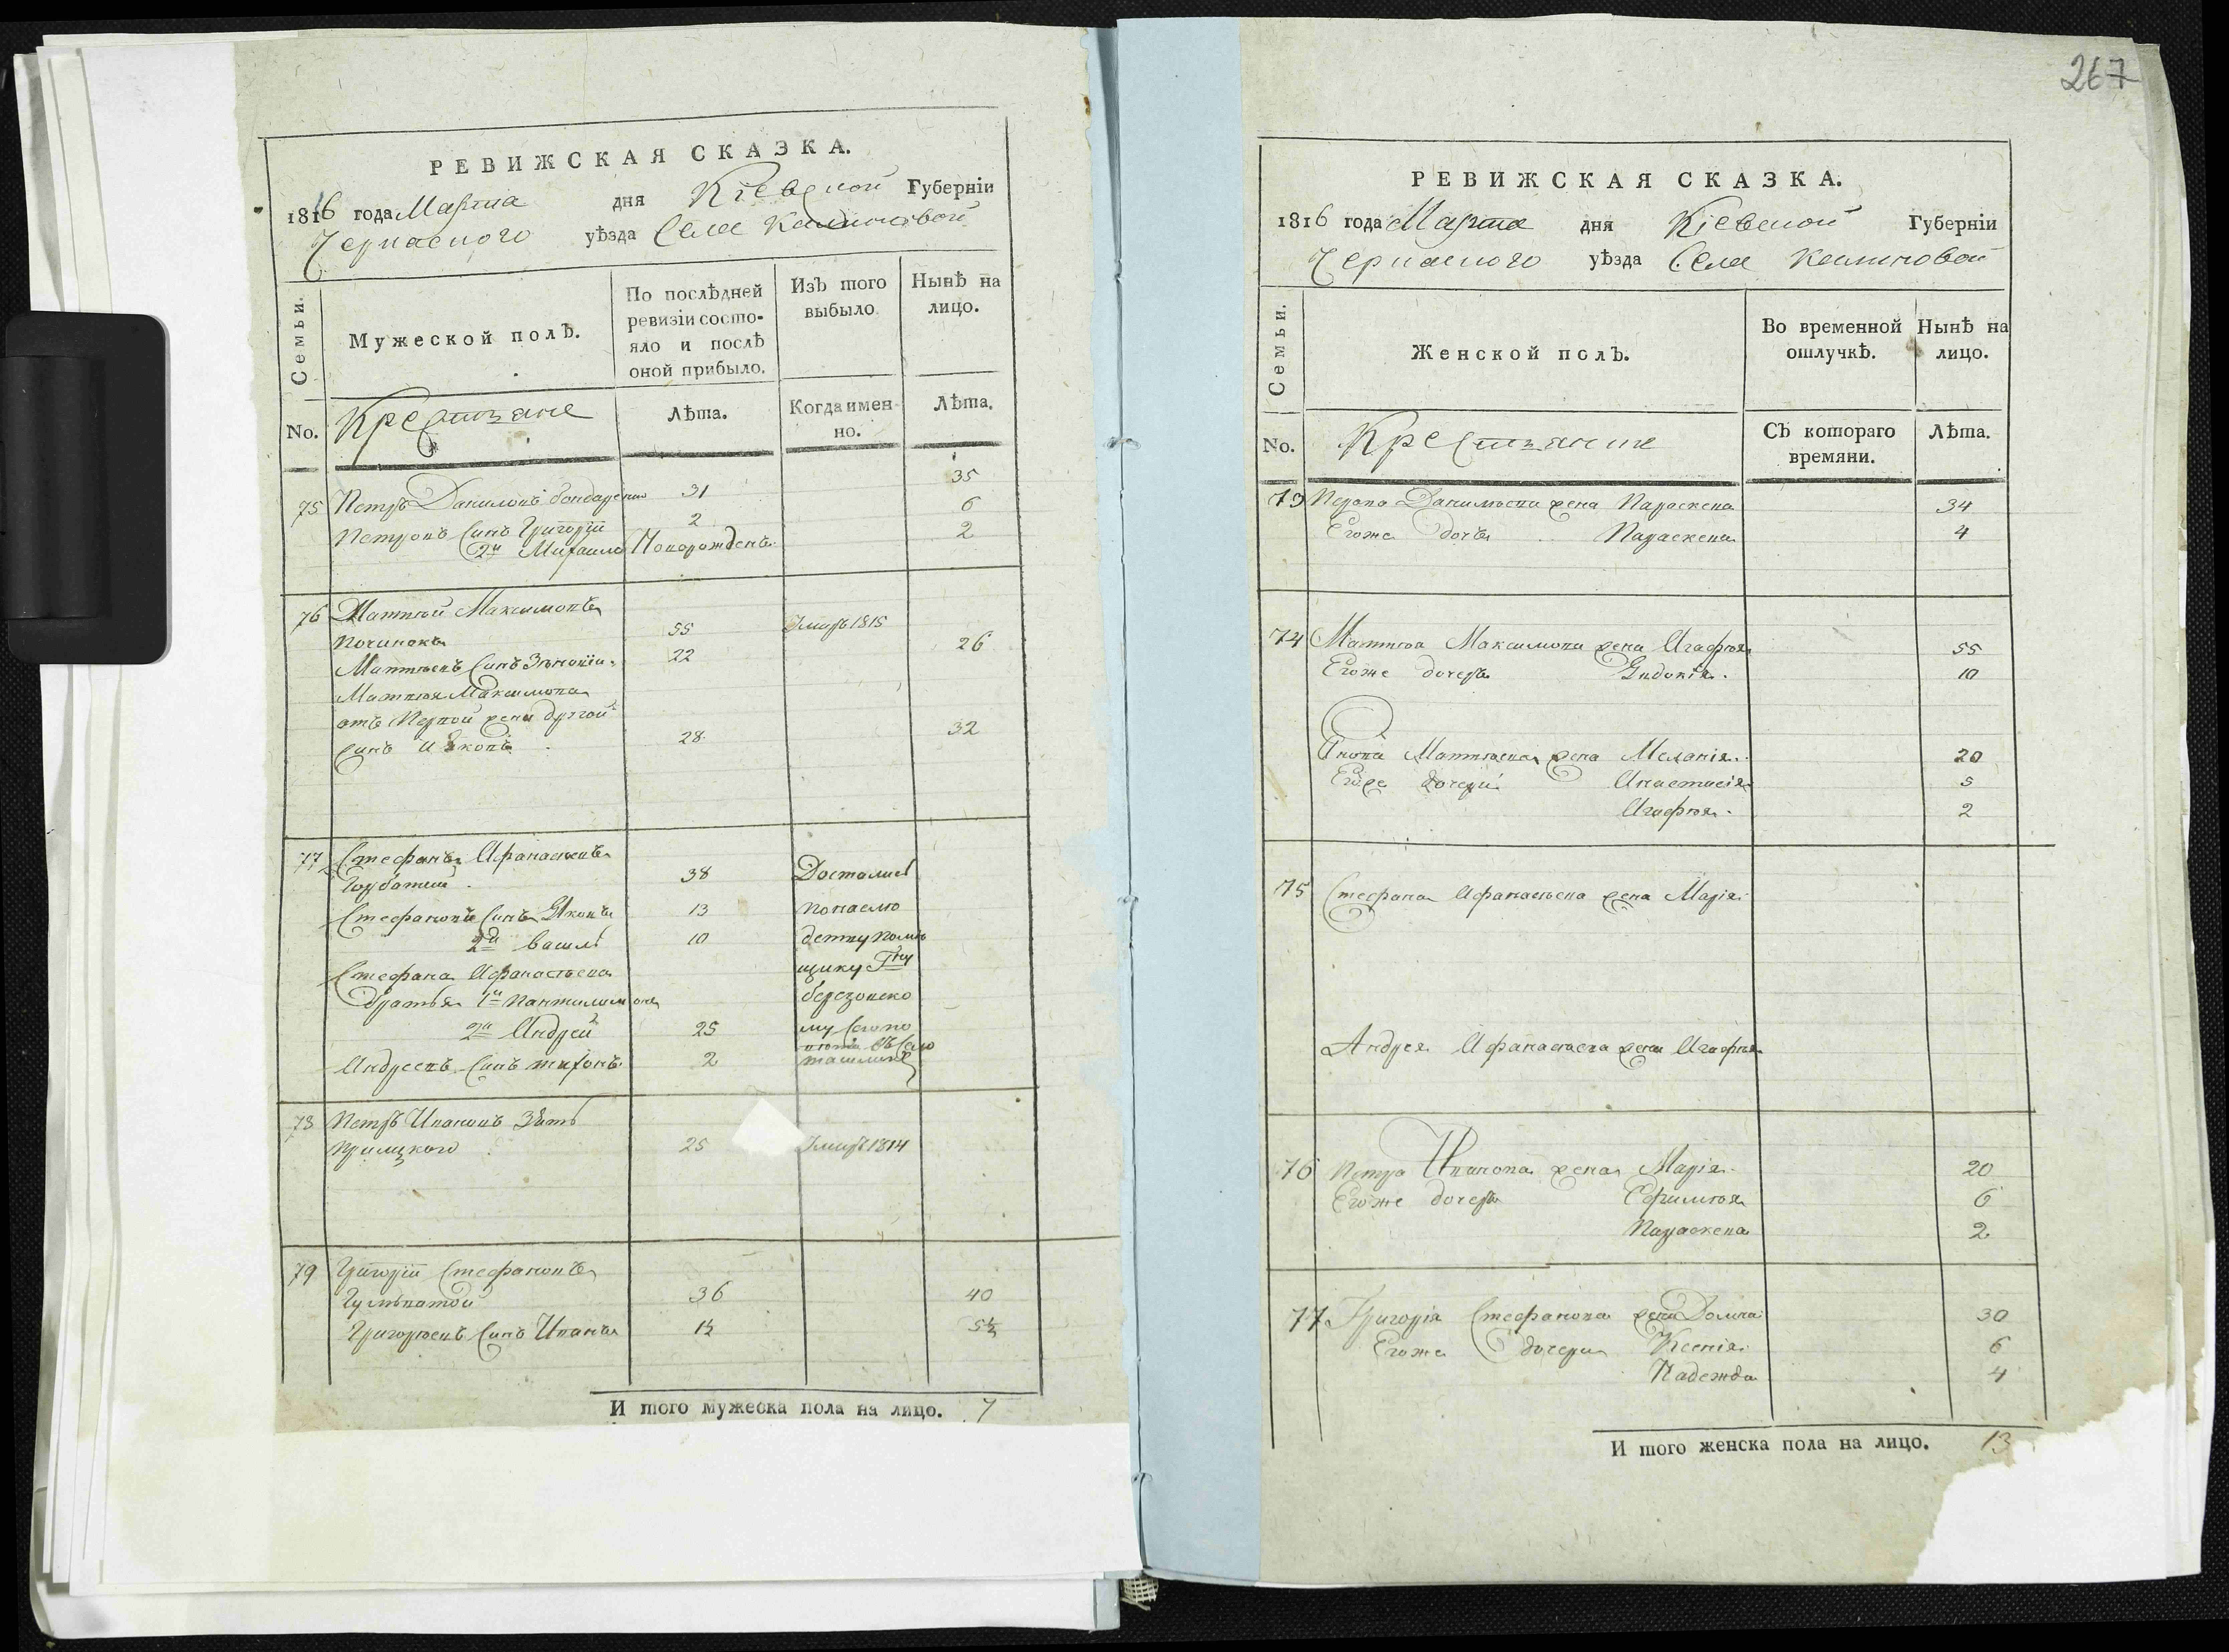 267
РЕВИЖСКАЯ СКАЗКА.
1816 года Марта дня Кіевской Губерніи
Черкаского уѣзда Села
Семьи.
Мужеской полъ.
По послѣдней ревизіи состо-
яло и послѣ
оной прибыло.
Изъ того
выбыло
Нынѣ на
лицо.
No.
Крестьяне
Лѣта.
Когда имен-
но.
Лѣта.
75 Петръ Даниловъ бондаренко 31 35
Петровъ Синъ Григорій 2 6
2й Михаило Новорожденъ 2
76 Матвѣй Максимовъ
Починокъ 55 Умиръ 1815
Матвѣевъ Синъ Зѣновій 22 26
Матвѣя Максимова
отъ Первой жени другой
синъ Яковъ 28 32
77 Стефанъ Афанасѣевъ
Горбатий 38 Достались
Стефановъ Синъ Яковъ 13 понаслѣ
2й Василь 10 детву помѣ
Стефана Афанасѣева щику Гну
братья 1й Пантилимонъ березовско
2й Андрей 25 му
Андреевъ Синъ тихонъ 2
78 Петръ Ивановъ Зять
25 Умиръ 1814
79 Григорій Стефановъ
36 40
Григорѣевъ Синъ Иванъ 1½ 5½
И того мужеска пола на лицо. 7
РЕВИЖСКАЯ СКАЗКА.
1816 года Марта дня Кіевской Губерніи
Черкаского уѣзда Села
Семьи.
Женской полъ.
Во временной
отлучкѣ.
Нынѣ на
лицо.
No.
Крестьянки
Съ котораго
времяни.
Лѣта.
73 Петра Данилѣева жена Параскева 34
Егоже дочь Параскева 4
74 Матвѣя Максимова жена Агафѣя 55
Егоже дочерь Евдокія 10
Якова Матвѣева жена Меланія 20
Егоже дочери Анастасія 5
Агафѣя 2
75 Стефана Афанасѣева жена Марія
Андрея Афанасѣева жена Агафѣя
76 Петра Иванова жена Марія 20
Егоже дочерь Ефимѣя 6
Параскева 2
77 Григорія Стефанова жена Домна 30
Егоже дочери Ксенія 6
Надежда 4
И того женска пола на лицо. 13